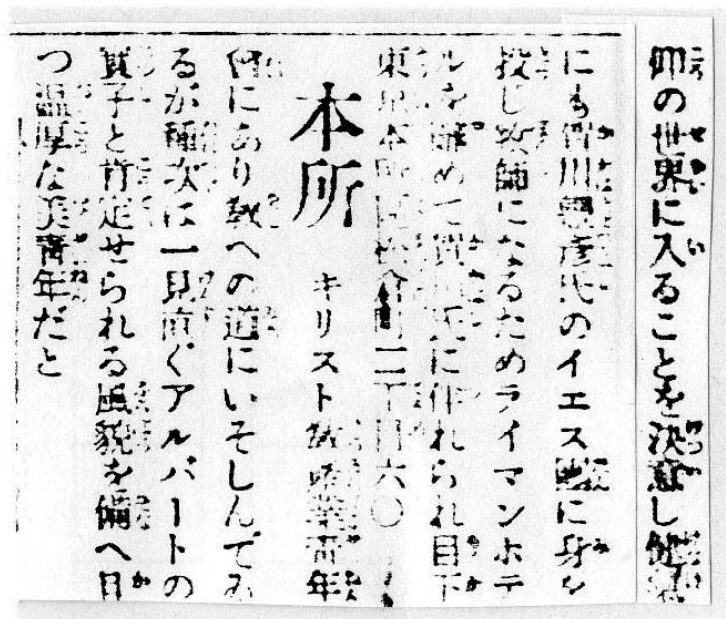 仰の世界に入ることを決意し健氣
にも賀川豊彦氏のイエス團に身を
投じ牧師になるためライマンホテ
ルを辭めて賀川氏に伴れられ目下
東京本所區松倉町二丁目六〇
本所 キリスト教産業青年
會にあり教への道にいそしんでゐ
るが種次は一見直ぐアルバートの
實子と肯定せられる風貌を備へ且
つ温厚な美青年だと